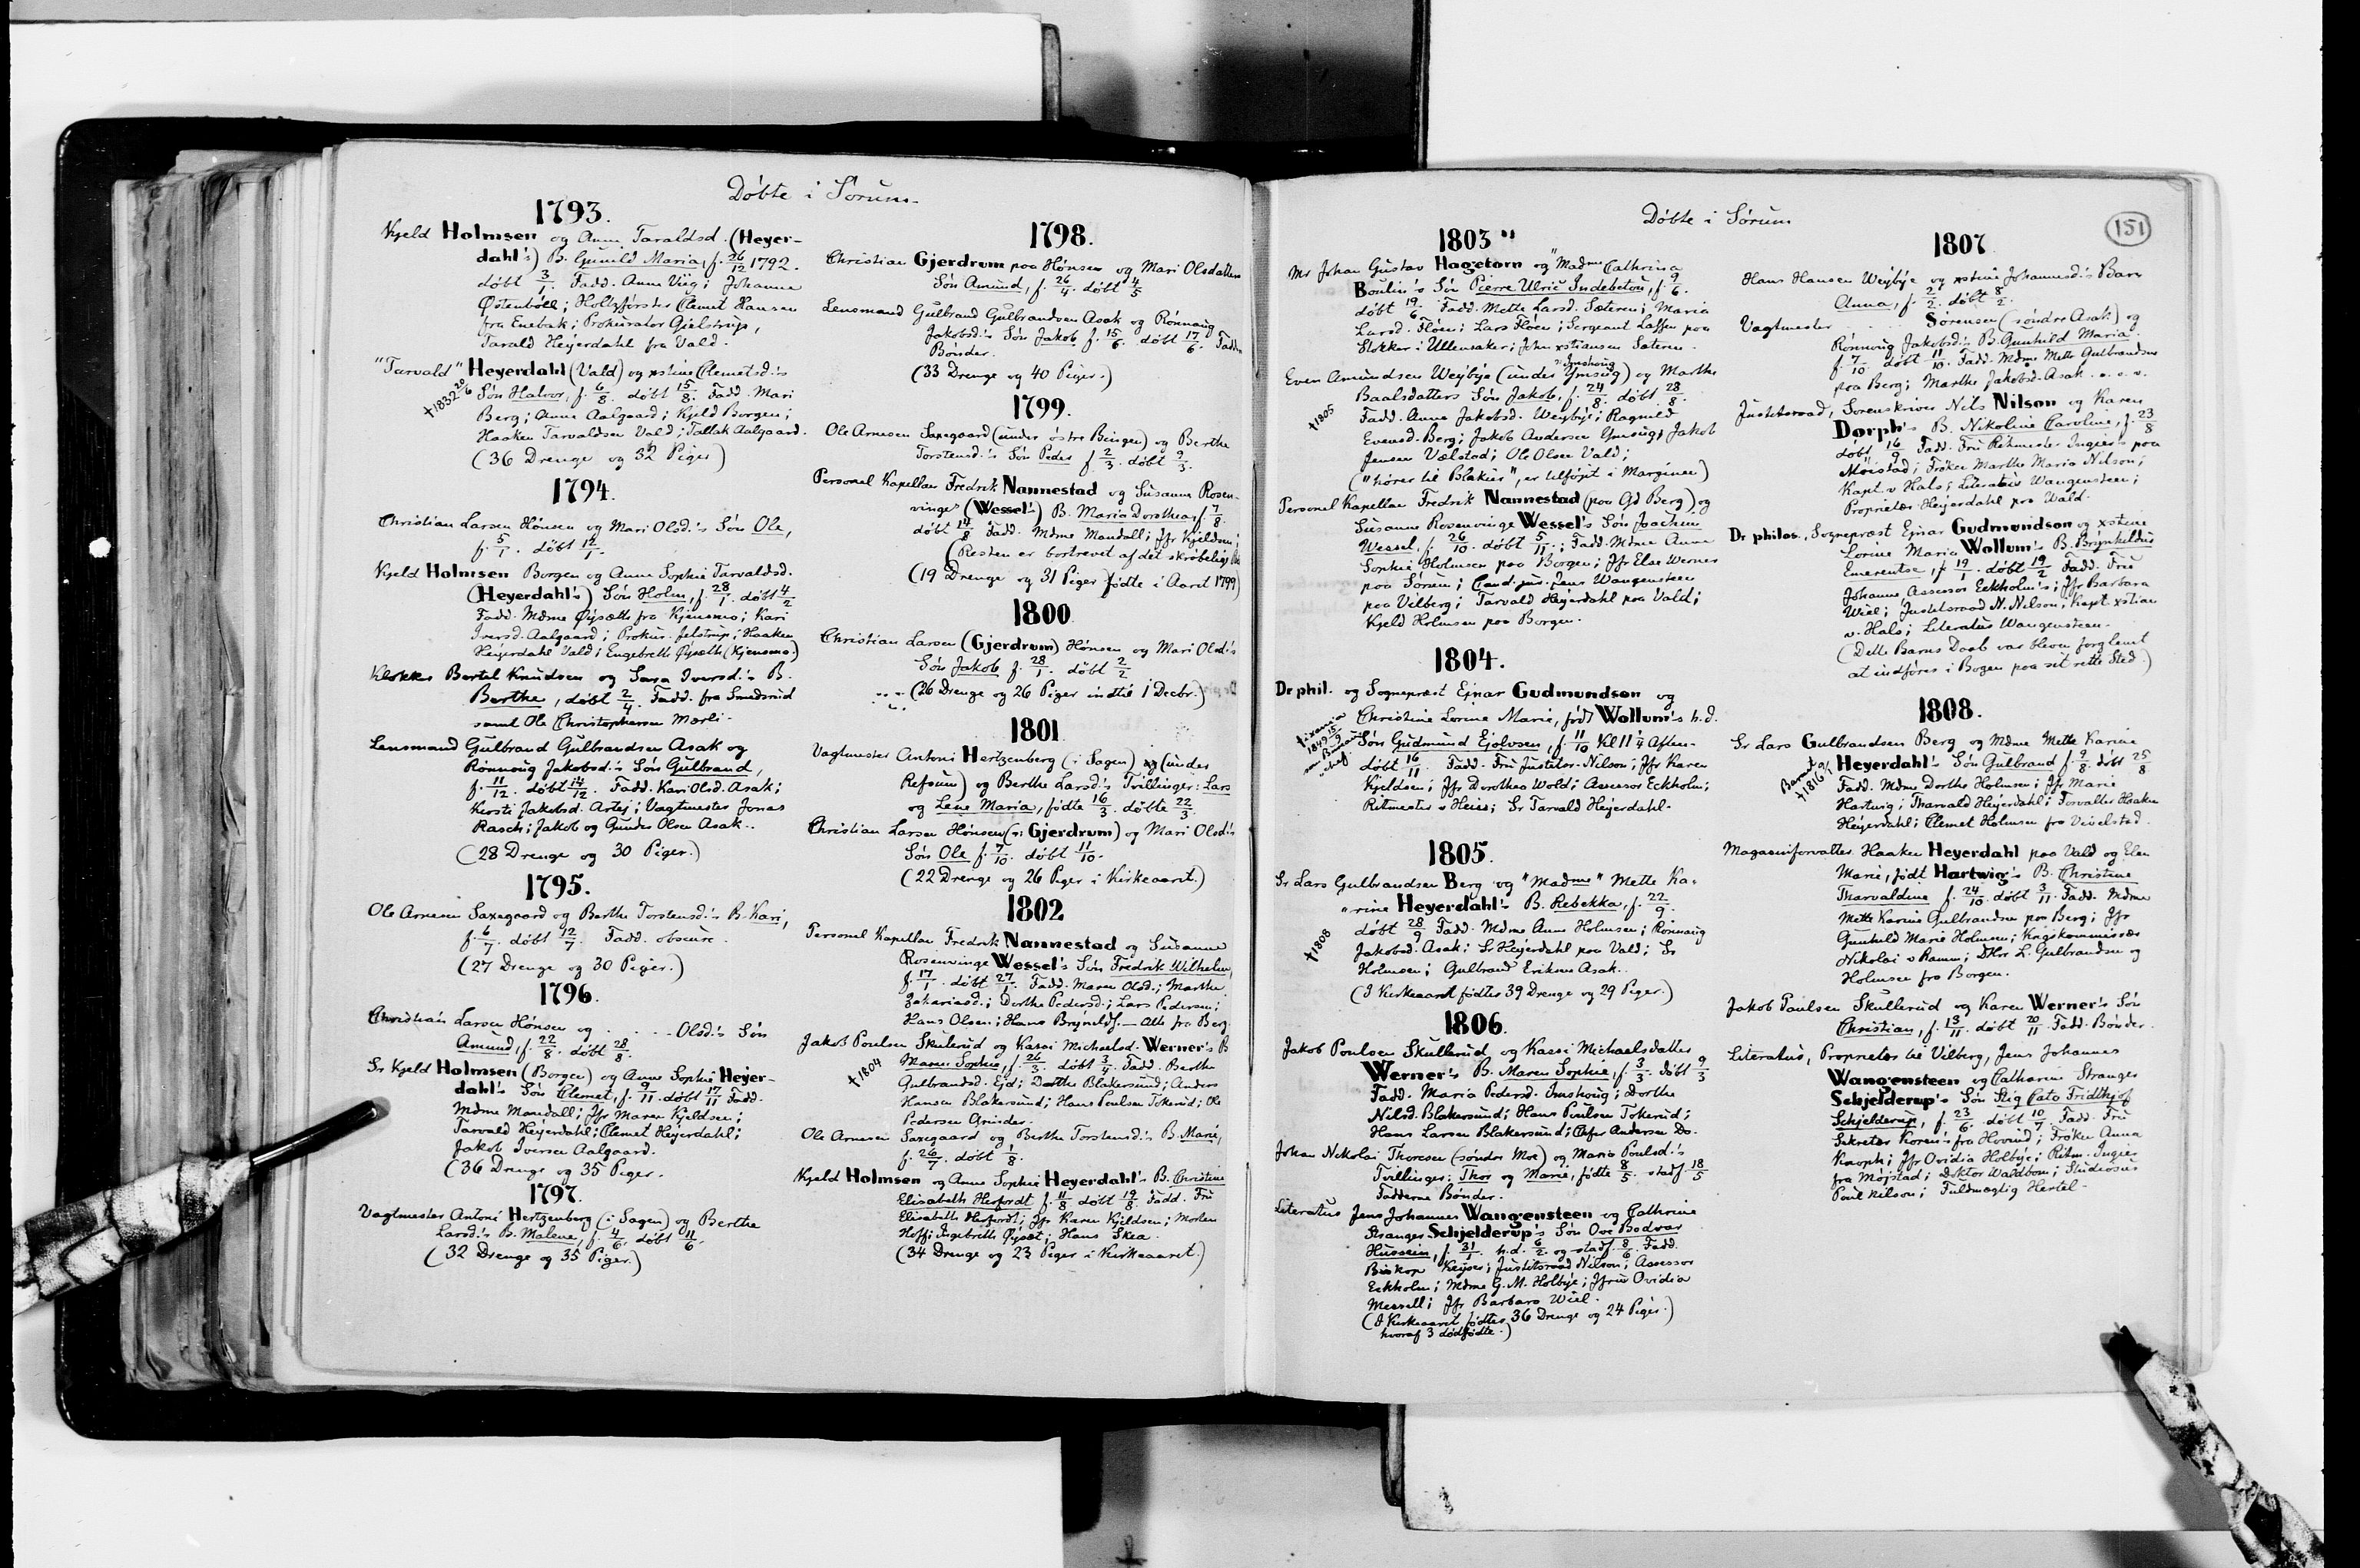 Döbte i Sörum
1793.
Kjeld Holmsen og Anne Taraldsd. (Heyer-
dahl's) B. Gunild Maria, f. 26/12 1792.
döbt 3/1. Fadd. Anne Viig; Johanne
Östenböll; Holtzförster Clemet Hansen
fra Enebak; Prokurator Gjelstrup,
Tarald Heyerdahl fra Vald.
"Tarvald" Heyerdahl (Vald) og xstine Clemetsd.'s
†1832 20/6 Sön Halvor, f. 6/8. döbt 15/8. Fadd. Mari
Berg; Anne Aalgaard; Kjeld Borgen;
Haaken Tarvaldsen Vald; Tallak Aalgaard.
(36 Drenge og 32 Piger)
1794.
Christian Larsen Hönsen og Mari Olsd.'s Sön Ole,
f. 5/1. döbt 12/1.
Kjeld Holmsen Borgen og Anne Sophie Tarvaldsd.
(Heyerdahl's) Sön Holm, f. 28/1. döbt 4/2
Fadd. Mdme Öysæth fra Kjensmo; Kari
Iversd. Aalgaard; Prokur. Jelstrup; Haaken
Heyerdahl Vald; Engebreth Öysæth (Kjensmo.)
Klokker Bertel Knudsen og Sara Iversd.'s B.
Berthe, döbt 2/4. Fadd. fra Smedsrud
samt Ole Christophersen Mærli.
Lensmand Gulbrand Gulbrandsen Asak og
Rönnoug Jakobsd.'s Sön Gulbrand,
f. 11/12. döbt 14/12. Fadd. Kari Olsd. Asak;
Kersti Jakobsd. Artej; Vagtmester Jonas
Rasch; Jakob og Gunder Olsen Asak..
(28 Drenge og 30 Piger.)
1795.
Ole Arnesen Saxegaard og Berthe Torstensd.'s B. Kari,
f. 6/7. döbt 12/7. Fadd. obscure.
(27 Drenge og 30 Piger.)
1796.
Christian Larsen Hönsen og . . . . Olsd.'s Sön
Amund, f. 22/8. döbt 28/8.
Sr Kjeld Holmsen (Borgen) og Anne Sophie Heyer-
dahl's Sön Clemet, f. 9/11. döbt 17/11 Fadd.
Mdme Mandall; Jfr Maren Kjeldsen;
Tarvald Heyerdahl; Clemet Heyerdahl;
Jakob Iversen Aalgaard.
(36 Drenge og 35 Piger.
1797.
Vagtmester Antoni Hertzenberg (i Sagen) og Berthe
Larsd.'s B. Malene, f. 4/6. döbt 11/6.
(32 Drenge og 35 Piger.)
1798.
Christian Gjerdrum paa Hönsen og Mari Olsdatters
Sön Amund, f. 26/4. döbt 4/5
Lensmand Gulbrand Gulbrandsen Asak og Rönnaug
Jakobsd.'s Sön Jakob f. 15/6. döbt 17/6. Fadd.
Bönder.
(33 Drenge og 40 Piger.)
1799.
Ole Arnesen Saxegaard (under östre Bingen) og Berthe
Torstensd.'s Sön Peder f. 2/3. döbt 9/3.
Personel Kapellan Fredrik Nannestad og Susanne Rosen-
vinge (Wessel's) B. Maria Dorothea, f. 7/8.
döbt 14/8 Fadd. Mdme Mandall; Jfr Kjeldsen;
(Resten er bortrevet af det skröbelige
(19 Drenge og 31 Piger födte i Aaret 1799)
1800
Christian Larsen (Gjerdrum) Hönsen og Mari Olsd.'s
Sön Jakob f. 28/1. döbt 2/2
(26 Drenge og 26 Piger indtil 1 Decbr.)
1801
Vagtmester Antoni Hertzenberg (i Sagen) (under
Refsum) og Berthe Larsd.'s Tvillinger: Lars
og Lene Maria, födte 16/3. döbte 22/3.
Christian Larsen Hönsen (Gjerdrum) og Mari Olsd.'s
Sön Ole f. 7/10. döbt 11/10.
(22 Drenge og 26 Piger i Kirkeaaret.)
1802
Personel Kapellan Fredrik Nannestad og Susanne
Rosenvinge Wessel's Sön Fredrik Wilhelm,
f. 17/1. döbt 27/1. Fadd. Maren Olsd.; Marthe
Zakariasd.; Dorthe Pedersd.; Lars Pedersen;
Hans Olsen; Hans Brynelds. — Alle fra Berg.
Jakob Poulsen Skulerud og Kassi Michaelsd. Werner's B
†1804 Maren Sophie, f. 26/3. döbt 3/4. Fadd. Berthe
Gulbrandsd. Ejd; Dorthe Blakersund; Anders
Hansen Blakersund; Hans Poulsen Tokerud; Ole
Pedersen Grinder.
Ole Arnesen Saxegaard og Berthe Torstensd.'s B. Marie,
f. 26/7. döbt 1/8.
Kjeld Holmsen og Anne Sophie Heyerdahl's B. Christine
Elisabeth Herfordt f. 11/8 döbt 19/8. Fadd. Fru
Elisabeth Herfordt; Jfr Karen Kjeldsen; Morten
Hoff; Ingebreth Öysæt; Hans Skea.
(34 Drenge og 23 Piger i Kirkeaaret.)
Döbte i Sörum
151
1803
Mr Johan Gustav Hagetorn og "Madme Cathrina
Boulin's Sön Pierre Ulric Indebetou, f. 9/6.
döbt 19/6. Fadd. Mette Larsd. Sæteren; Maria
Larsd. Flöen; Lars Flöen; Sergeant Laffen paa
Slokker i Ullensaker; John xstiansen Sæteren.
Even Amundsen Weybye (under Ymsug) og Marthe
Imshoug
Baalsdatters Sön Jakob, f. 24/8. döbt 28/8.
†1805 Fadd. Anne Jakobsd. Weybye; Ragnild
Evensd. Berg; Jakob Andersen Ymsug; Jakob
Jensen Vælstad; Ole Olsen Vald;
("hörer til Blakier", er tilföjet i Marginen)
Personel Kapellan Fredrik Nannestad (paa Gd Berg) og
Susanne Rosenvinge Wessel's Sön Joachim
Wessel, f. 26/10. döbt 5/11.; Fadd. Mdme Anne
Sophie Holmsen paa Borgen; Jfr Else Werner
paa Sörum; Cand. jur. Jens Wangensteen
paa Vilberg; Tarvald Heyerdahl paa Vald;
Kjeld Holmsen paa Borgen.
1804.
Dr phil. og Sognepræst Ejnar Gudmundson og
Christine Lorine Marie, föd Wollum's h.d.
Sön Gudmund Ejolvsen, f. 11/10 Kl 11 1/4 Aften-
döbt 16/11. Fadd. Fru Justitsr. Nilson; Jfr Karen
Kjeldsen; Jfr Dorothea Wold; Assessor Eckholm;
Ritmester v Heiss; Sr Tarvald Heyerdahl.
1805.
Sr Lars Gulbrandsen Berg og "Madme" Mette Ka-
rine Heyerdahl's B. Rebekka, f. 22/9.
†1808 döbt 28/9 Fadd. Mdme Anne Holmsen; Rönnaug
Jakobsd. Asak; Sr Heyerdahl paa Vald; Sr
Holmsen; Gulbrand Eriksen Asak..
(I Kirkeaaret födtes 39 Drenge og 29 Piger.)
1806.
Jakob Poulsen Skullerud og Kassi Michaelsdatter
Werner's B. Maren Sophie, f. 3/3. döbt 9/3
Fadd. Maria Pedersd. Imshoug; Dorthe
Nilsd. Blakersund; Hans Poulsen Tokerud;
Hans Larsen Blakersund; Chfer Andersen Do.
Johan Nikolai Thoresen (söndre Moe) og Maria Poulsd.'s
Tvillinger: Thor og Marie, födte 8/5. stadf. 18/5
Fadderne Bönder.
Literatus Jens Johannes Wangensteen og Cathrine
Stranger Schjelderup's Sön Ove Bodvar
Hussein, f. 31/1. h.d. 6/2. og stadf. 8/6. Fadd.
Biskop Keyser; Justitsraad Nilson; Assessor
Eckholm; Mdme G. M. Holbye; Jfrue Ovidia
Messell; Jfr Barbara Wiel.
(I Kirkeaaret födtes 36 Drenge og 24 Piger.
hvoraf 3 dödfödte.)
1807
Hans Hansen Weybye og xstine Johannesd.'s Barn
Anna, f. 2/2. döbt 8/2.
Vagtmester Sörensen (söndre Asak) og
Rönnoug Jakobsd.'s B. Gunhild Maria
f. 7/10 döbt 11/10. Fadd. Mdme Mette Gulbrandsen
paa Berg; Marthe Jakobsd. Asak. o. s. v.
Justitsraad, Sorenskriver Nils Nilson og Karen
Dorph's B. Nikoline Caroline, f. 23/8
döbt 16/9 Fadd. Fru Ritmester Ingier's paa
Möistad; Fröken Marthe Maria Nilson;
Kapt. v Hals; Literatus Wangensteen;
Proprietær Heyerdahl paa Vald.
Dr philos., Sognepræst Ejnar Gudmundson og xstine
Lorine Maria Wollum's B. Brynhildur
Emerentse, f. 19/1. döbt 19/2 Fadd. Fru
Johanne Assessor Eckholm's; Jfr Barbara
Wiel; Justitsraad N. Nilson; Kapt. xstian
v. Hals; Literatus Wangensteen.
(Dette Barns Daab var bleven forglemt
at indföres i Bogen paa sit rette Sted.)
1808.
Sr Lars Gulbrandsen Berg og Mdme Mette Karine
Heyerdahl's Sön Gulbrand f. 9/8. döbt 25/8
Fadd. Mdme Dorthe Holmsen; Jfr Marie
Hartwig; Tharvald Heyerdahl; Forvalter Haaken
Heyerdahl; Clemet Holmsen fra Vivelstad.
Magasinforvalter Haaken Heyerdahl paa Vald og Elen
Marie, födt Hartwig's B. Christine
Tharvaldine f. 24/10. döbt 3/11. Fadd. Mdme
Mette Karine Gulbrandsen paa Berg; Jfr
Gunhild Marie Holmsen; Krigskommissær
Nikolai v Ramm; DHrr L. Gulbrandsen og
Holmsen fra Borgen.
Jakob Paulsen Skullerud og Karen Werner's Sön
Christian, f. 13/11. döbt 20/11. Fadd. Bönder.
Literatus, Proprietær til Vilberg, Jens Johannes
Wangensteen og Catharine Stranger
Schjelderup's Sön Stig Cato Fridthjof
Schjelderup, f. 23/6. döbt 10/7. Fadd. Fru
Sekretær Koren's fra Hovind; Fröken Anna
Knoph; Jfr Ovidia Holbye; Ritm. Ingier
fra Möjstad; Doktor Waldbom; Studiosus
Poul Nilson; Fuldmægtig Hertel.